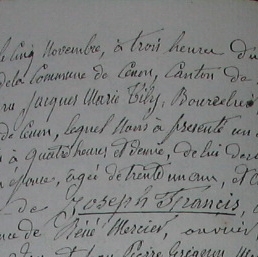 le cinq Novembre, à trois heures du
de la Commune de Cenon, Canton de
Jacques Marie
de Cenon, lequel Nous a présenté un
à quatre heures et demie, de lui
épouse, agée de trente un an, et
de Joseph Francis,
de René Mercier, ouvrier
Pierre